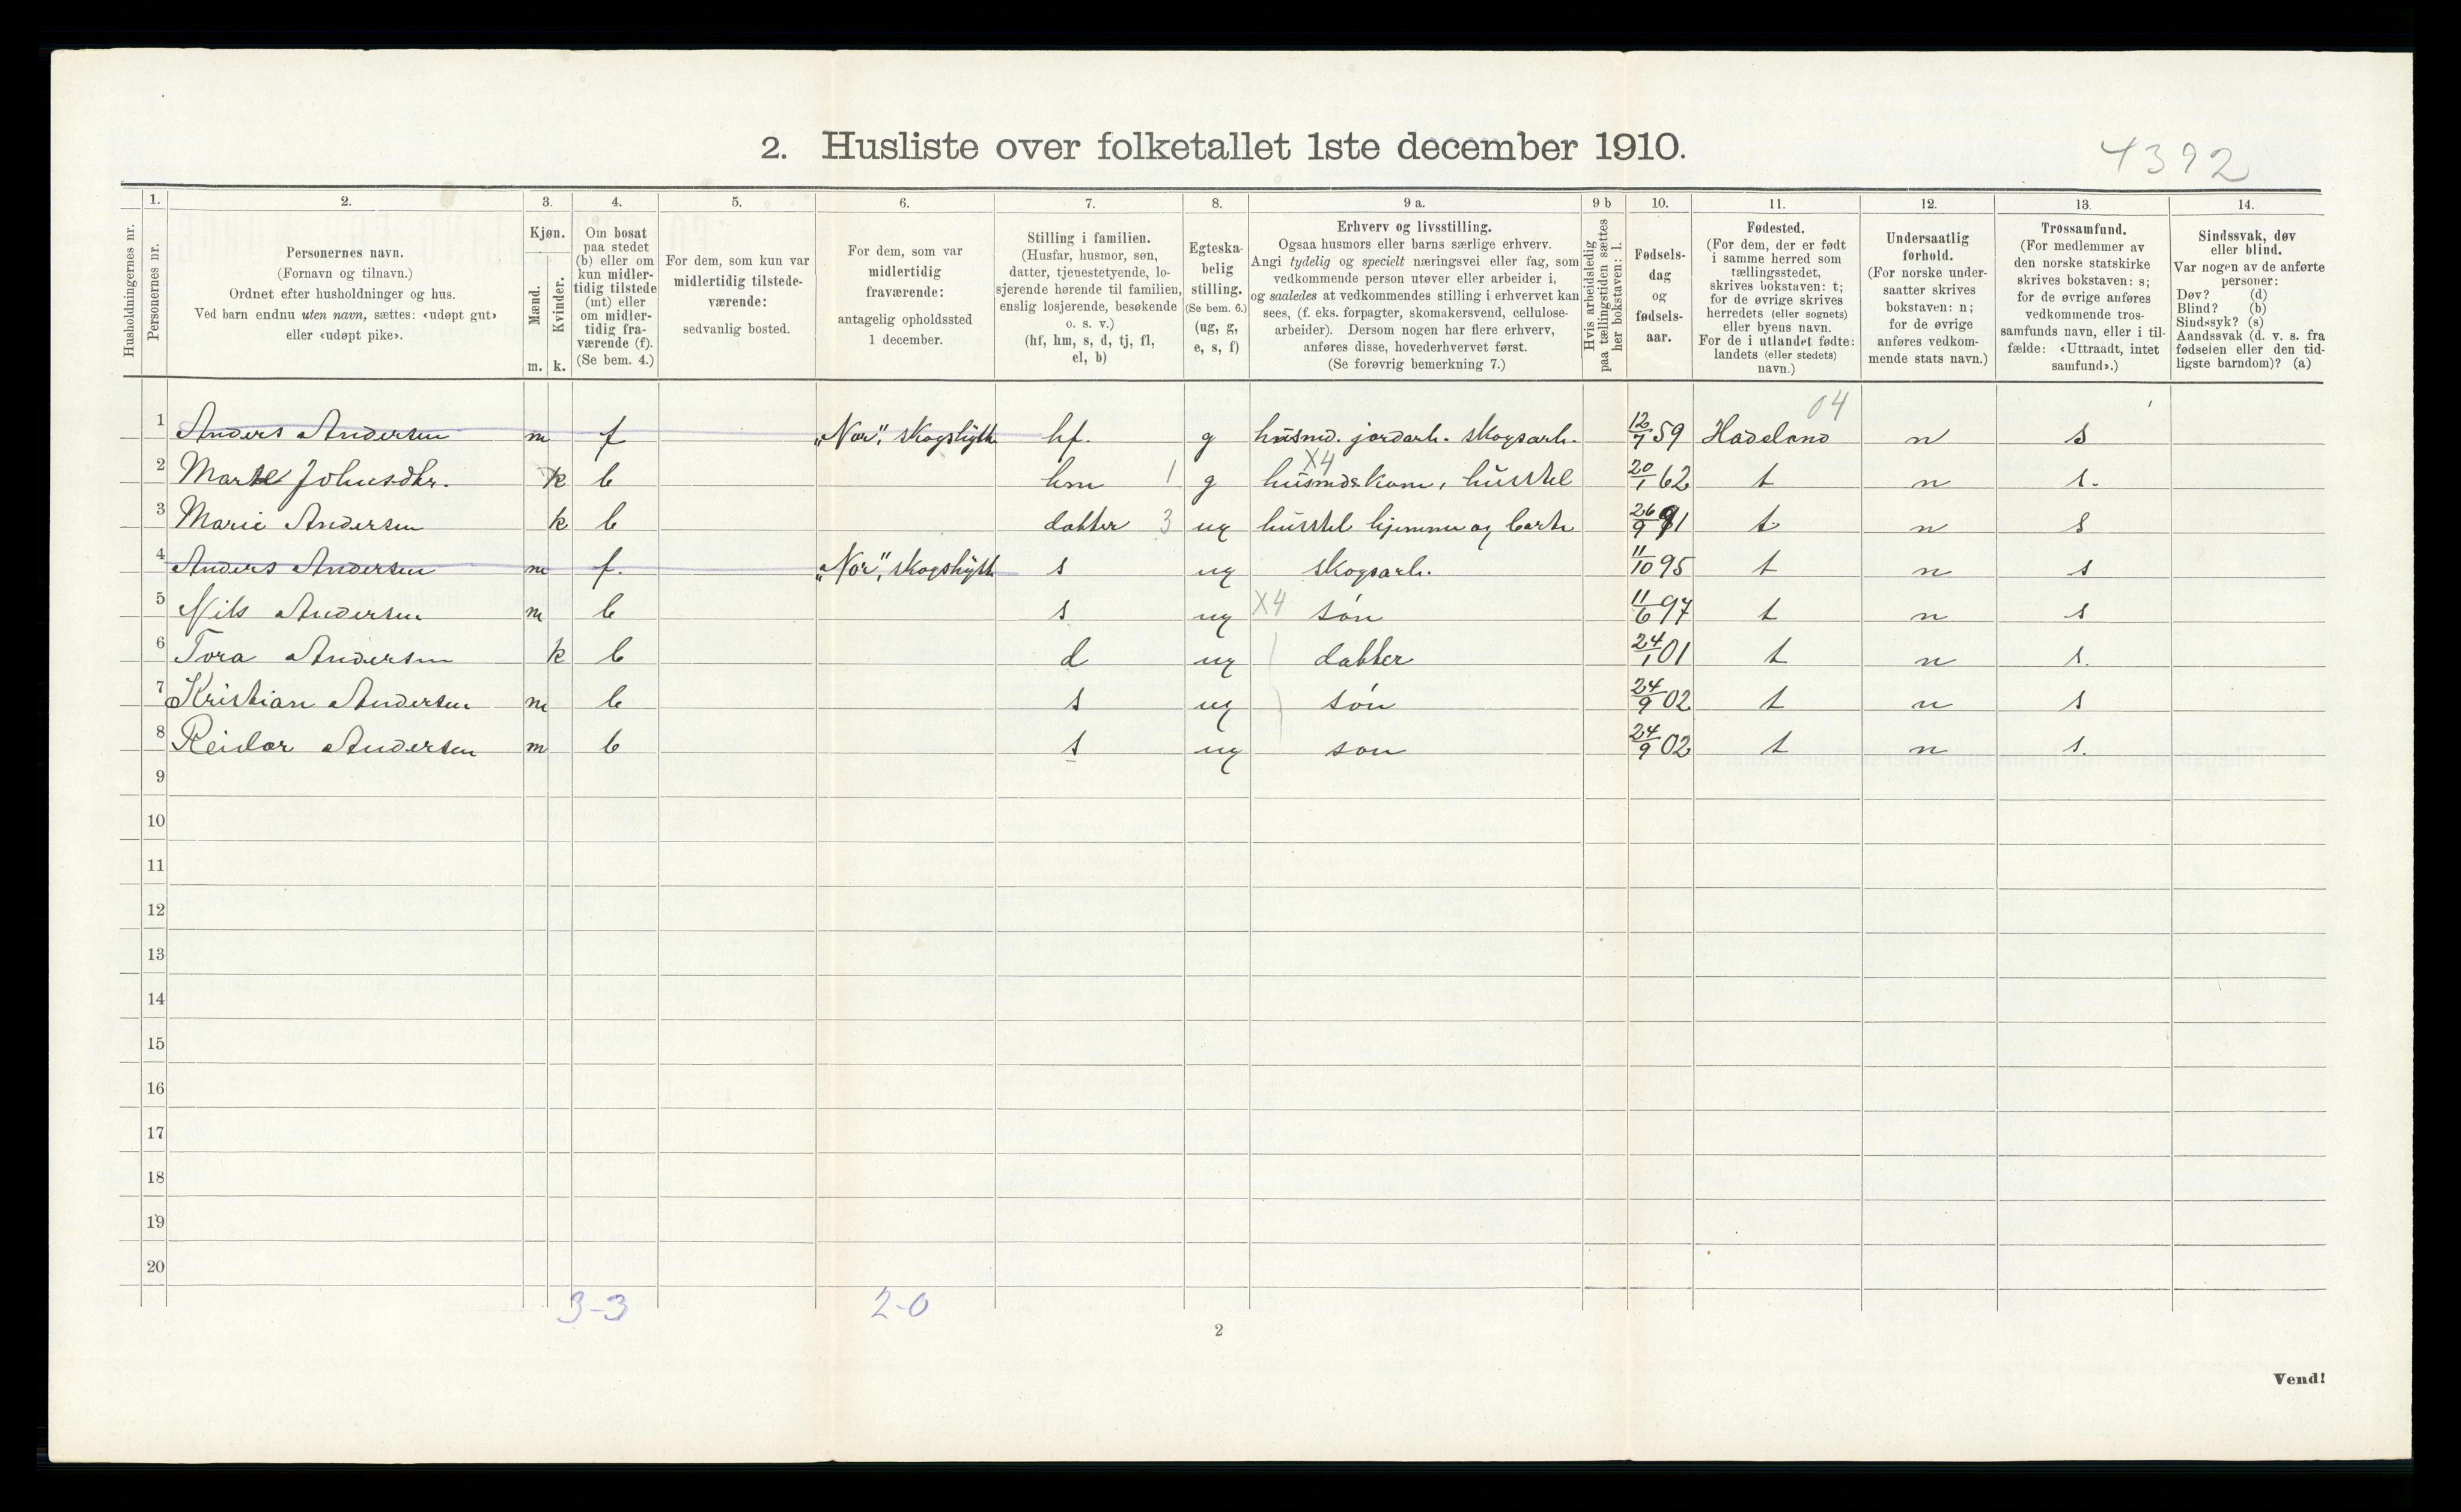 2. Husliste over folketallet 1ste december 1910.
4392
Husholdningernes nr.
1. Personernes nr.
2. Personernes navn.
(Fornavn og tilnavn.)
Ordnet efter husholdninger og hus.
Ved barn endnu uten navn, sættes: «udøpt gut»
eller «udøpt pike».
3. Kjøn.
Mænd. m.
Kvinder. k.
4. Om bosat
paa stedet
(b) eller om
kun midler-
tidig tilstede
(mt) eller
om midler-
tidig fra-
værende (f).
(Se bem. 4.)
5. For dem, som kun var
midlertidig tilstede-
værende:
sedvanlig bosted.
6. For dem, som var
midlertidig
fraværende:
antagelig opholdssted
1 december.
7. Stilling i familien.
(Husfar, husmor, søn,
datter, tjenestetyende, lo-
sjerende hørende til familien,
enslig losjerende, besøkende
o. s. v.)
(hf, hm, s, d, tj, fl,
el, b)
8. Egteska-
belig
stilling.
(Se bem. 6.)
(ug, g,
e, s, f)
9 a. Erhverv og livsstilling.
Ogsaa husmors eller barns særlige erhverv.
Angi tydelig og specielt næringsvei eller fag, som
vedkommende person utøver eller arbeider i,
og saaledes at vedkommendes stilling i erhvervet kan
sees, (f. eks. forpagter, skomakersvend, cellulose-
arbeider). Dersom nogen har flere erhverv,
anføres disse, hovederhvervet først.
(Se forøvrig bemerkning 7.)
9 b Hvis arbeidsledig
paa tællingstiden sættes
her bokstaven: l.
10. Fødsels-
dag
og
fødsels-
aar.
11. Fødested.
(For dem, der er født
i samme herred som
tællingsstedet,
skrives bokstaven: t;
for de øvrige skrives
herredets (eller sognets)
eller byens navn.
For de i utlandet fødte:
landets (eller stedets)
navn.)
12. Undersaatlig
forhold.
(For norske under-
saatter skrives
bokstaven: n;
for de øvrige
anføres vedkom-
mende stats navn.)
13. Trossamfund.
(For medlemmer av
den norske statskirke
skrives bokstaven: s;
for de øvrige anføres
vedkommende tros-
samfunds navn, eller i til-
fælde: «Uttraadt, intet
samfund».)
14. Sindssvak, døv
eller blind.
Var nogen av de anførte
personer:
Døv? (d)
Blind? (b)
Sindssyk? (s)
Aandssvak (d. v. s. fra
fødselen eller den tid-
ligste barndom)? (a)
04
1 Anders Andersen m f „Nor", skogshytte hf. g husmd. jordarb. skogsarb. 12/7 59 Hadeland n s
X4
2 Marte Johnsdtr. k b hm 1 g husmds kone, husstel 20/1 62 t n s.
3 Marie Andersen k b datter 3 ug husstel hjemme og 26/9 91 t n s
4 Anders Andersen m f. „Nor", skogshytte s ug skogsarb. 11/10 95 t n s
5 Nils Andersen m b s ug X4 søn 11/6 97 t n s
6 Tora Andersen k b d ug datter 24/1 01 t n s.
7 Kristian Andersen m b s ug søn 24/9 02 t n s
8 Reidar Andersen m b s ug søn 24/9 02 t n s.
9
10
11
12
13
14
15
16
17
18
19
20
3-3 2-0
2
Vend!